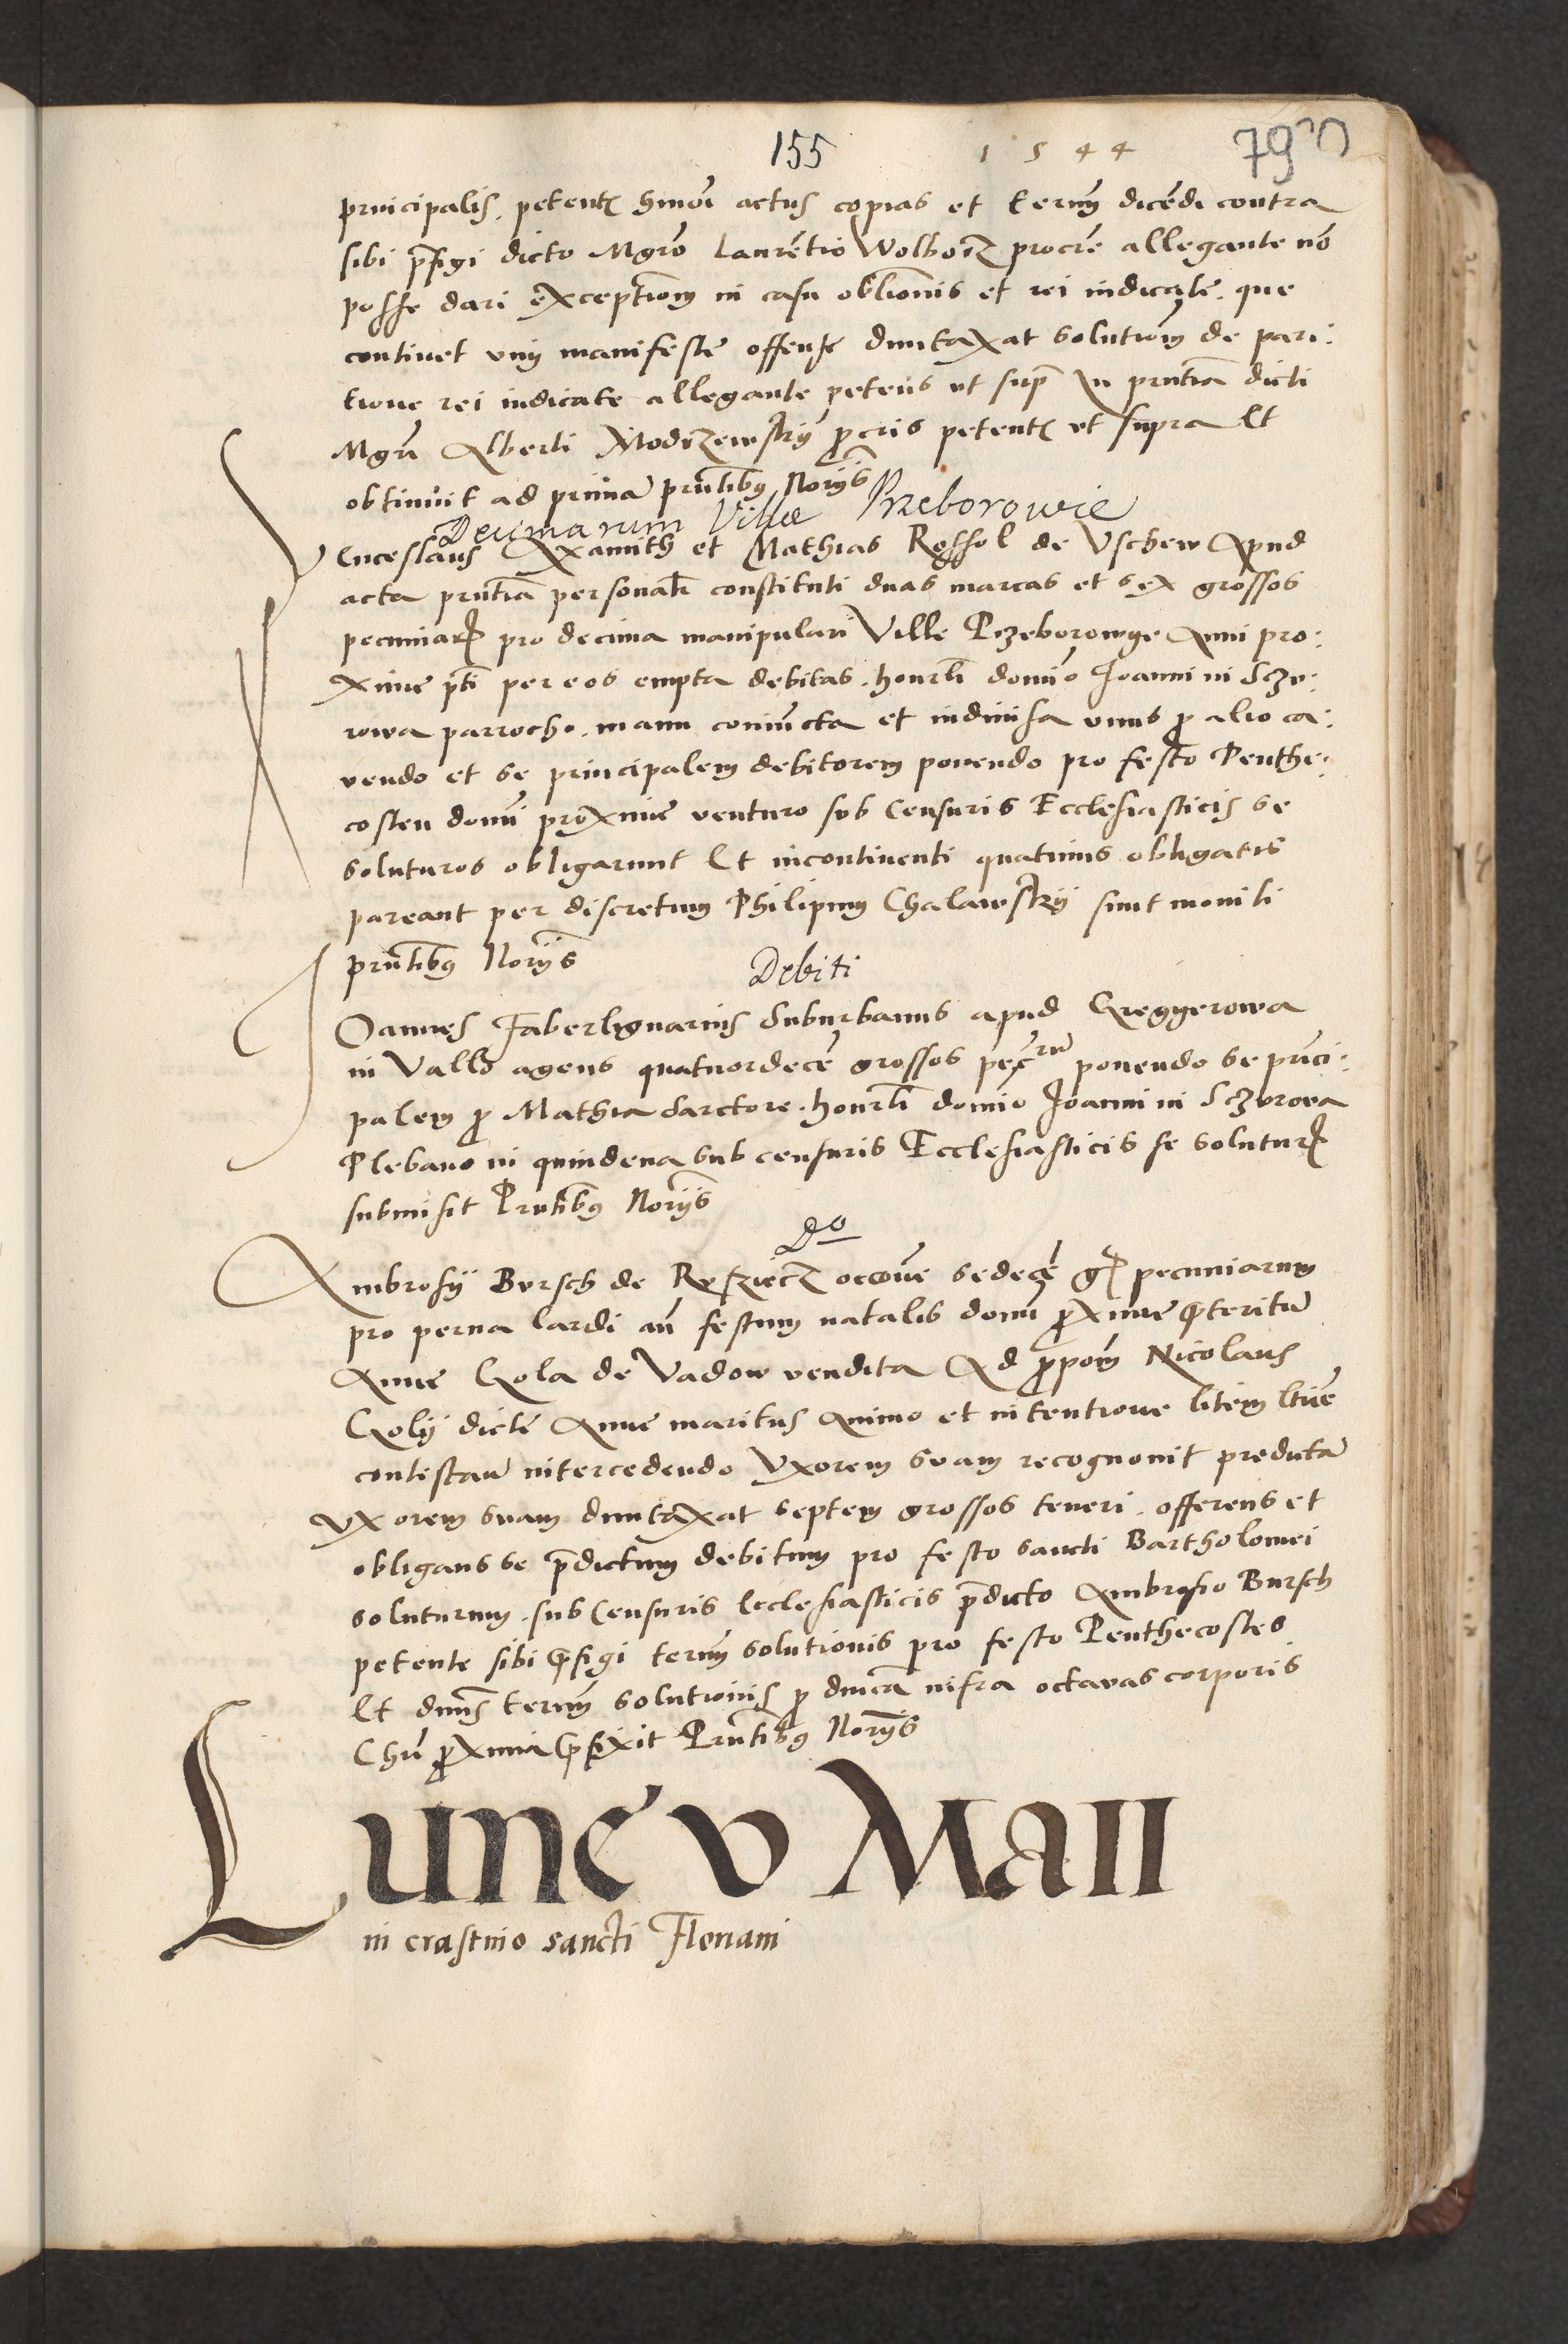 155 1544 79
principalis. petent[is] hmoi actus copias et termi dicedi contra
sibi pfigi dicto Mgro Laurentio Wolborz procre allegante no
posse dari exceptiom in casu oblionis et rei iudicate. que
continet vim manifeste offense duntaxat solutiom de pari:
tione rei iudicate allegante petens ut sup In pntia dicti
Mgri Alberti Modrzewskÿ pcris petent[is] ut supra Et
obtinuit ad prima pntibus Norÿs
Decimarum Villae Przeborowie
Venceslaus Axamith et Mathias Rossol de Vschew Apud
acta pntia personalr constituti duas marcas et sex grossos
pecuniar[um] pro decima manipulari Ville Przeborowye Anni pro:
xime pti per eos empta debitas. honrli domino Joanni in Sczu:
rowa parrocho. manu coniuncta et indiuisa vnus p alio ca:
uendo et se principalem debitorem ponendo pro festo Penthe:
costen domi proxime venturo sub Censuris Ecclesiasticis se
soluturos obligarunt Et incontinenti quatinus obligatis
pareant per discretum Philipum Chalawskÿ sunt moniti
pntibus Norÿs
Debiti
Joannes Faberlignarius Suburbanus apud Gregyerowa
in Vallo agens quatuordece grossos pecrum ponendo se princi:
palem p Mathia Sarctore. honrli domino Joanni in Sczurowa
Plebano in quindena sub censuris Ecclesiasticis se solutur[um]
submisit Pntibus Norÿs
Do
Ambrosÿ Bursch de occoe sedece g[rossorum] pecuniarum
pro perna lardi an festum natalis domi pxime pteritu
Anne Gola de Vadow vendita Ad ppom Nicolaus
Golÿ dicte Anne maritus Animo et intentione litem ltime
contestan intercedendo Vxorem suam recognouit predicta
vxorem suam duntaxat septem grossos teneri. offerens et
obligans se pdictum debitum pro festo sancti Bartholomei
soluturum. sub Censuris Ecclesiasticis pdicto Ambrosio Bursch
petente sibi pfigi termi solutionis pro festo Penthecostes
Et dnus termi solutionis p dnica infra octauas corporis
Chri pxima pfixit Pntibus Norÿs
Lune v Maii
in crastino sancti Floriani